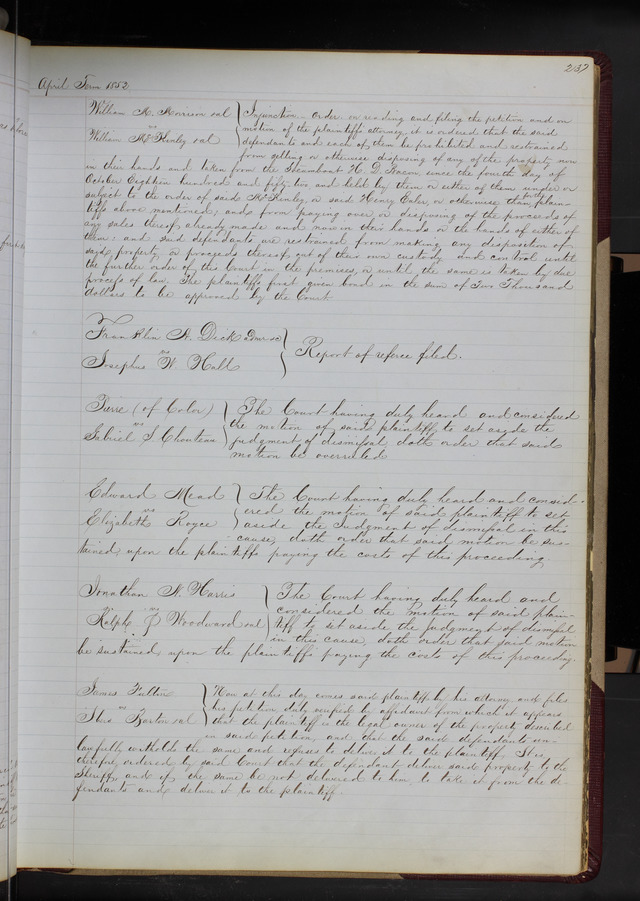 237
April Term 1852
William M. Morrison et al } Injunction order on reading and filing the petition and on
motion of the plaintiffs attorney, it is ordered that the said
vs
William McKinley et al defendants and each of them be prohibited and restrained
from selling or otherwise disposing of any of the property now
in their hands and taken from the Steamboat H. D. Bacon since the fourth day of
October Eighteen hundred and fifty two and held by them or either of them under or
subject to the order of said McKinley, or said Henry Ealer, or otherwise than to the plain-
tiffs above mentioned; and from paying over or disposing of the proceeds of
any sales thereof already made and now in their hands or the hands of either of
them: and said defendants are restrained from making any disposition of
said property or proceeds thereof out of their own custody and control until
the further order of this Court in the premises, or until the same is taken by due
process of law. The plaintiffs first given bond in the sum of Two Thousand
dollars to be approved by the Court
Franklin A. Dick admr &c
vs } Report of referee filed.
Josephus W Hall
Pierre (of Color) } The Court having duly heard and considered
the motion of said plaintiff to set aside the
vs
Gabriel S Chouteau judgment of dismissal doth order that said
motion be overruled
Edward Mead } The Court having duly heard and consid-
vs ered the motion of said plaintiff to set
Elizabeth Royce aside the Judgment of dismissal in this
cause, doth order that said motion be sus-
tained, upon the plaintiffs paying the costs of this proceeding.
Jonathan N. Harris } The Court having duly heard and
vs considered the motion of said plain-
Ralph Woodward et al tiff to set aside the judgment of dismissal
in this cause, doth order that said motion
be sustained, upon the plaintiffs paying the costs of this proceeding.
James Fulton } Now at this day comes said plaintiff by his attorney, and files
his petition, duly verified by affidavit from which it appears
vs
Barlow et al that the plaintiff is the legal owner of the property described
in said petition, and that the said defendants un-
lawfully witholds the same and refuses to deliver it to the plaintiff. It is
therefore ordered by said Court that the defendant deliver said property to the
Sheriff, and if the same be not delivered to him to take it from the de-
fendants and deliver it to the plaintiff.